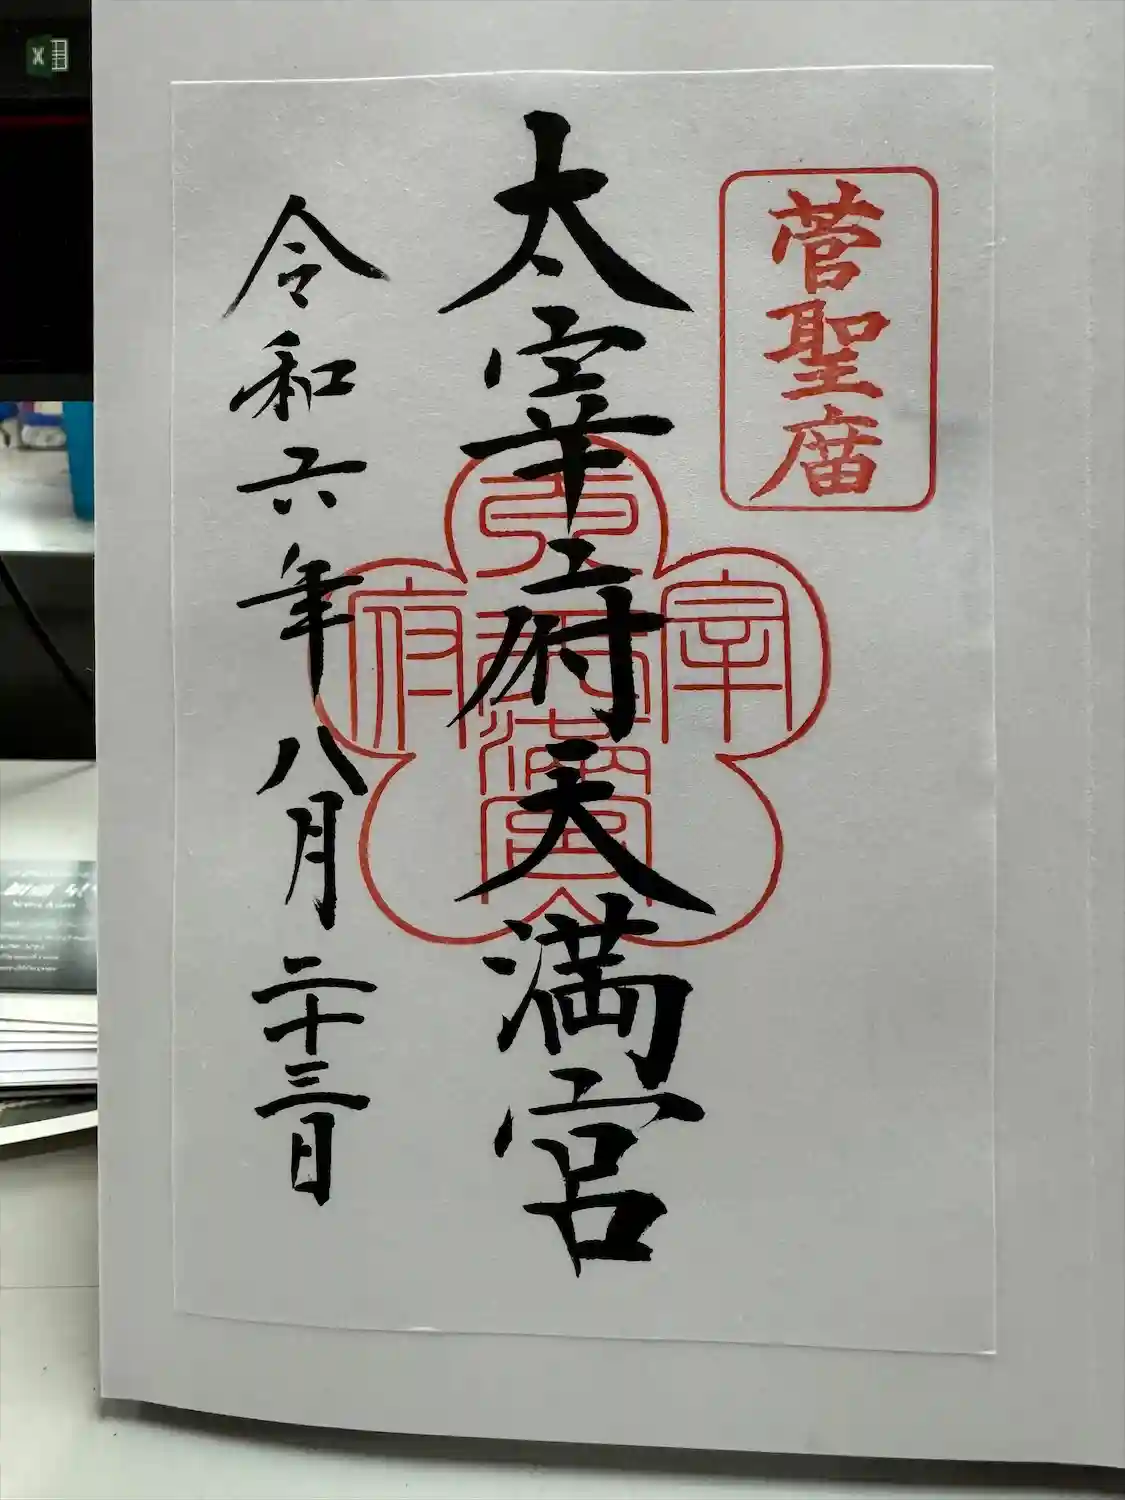 菅聖庿
太宰府天満宮
宰
府
天満宮
令和六年八月二十三日